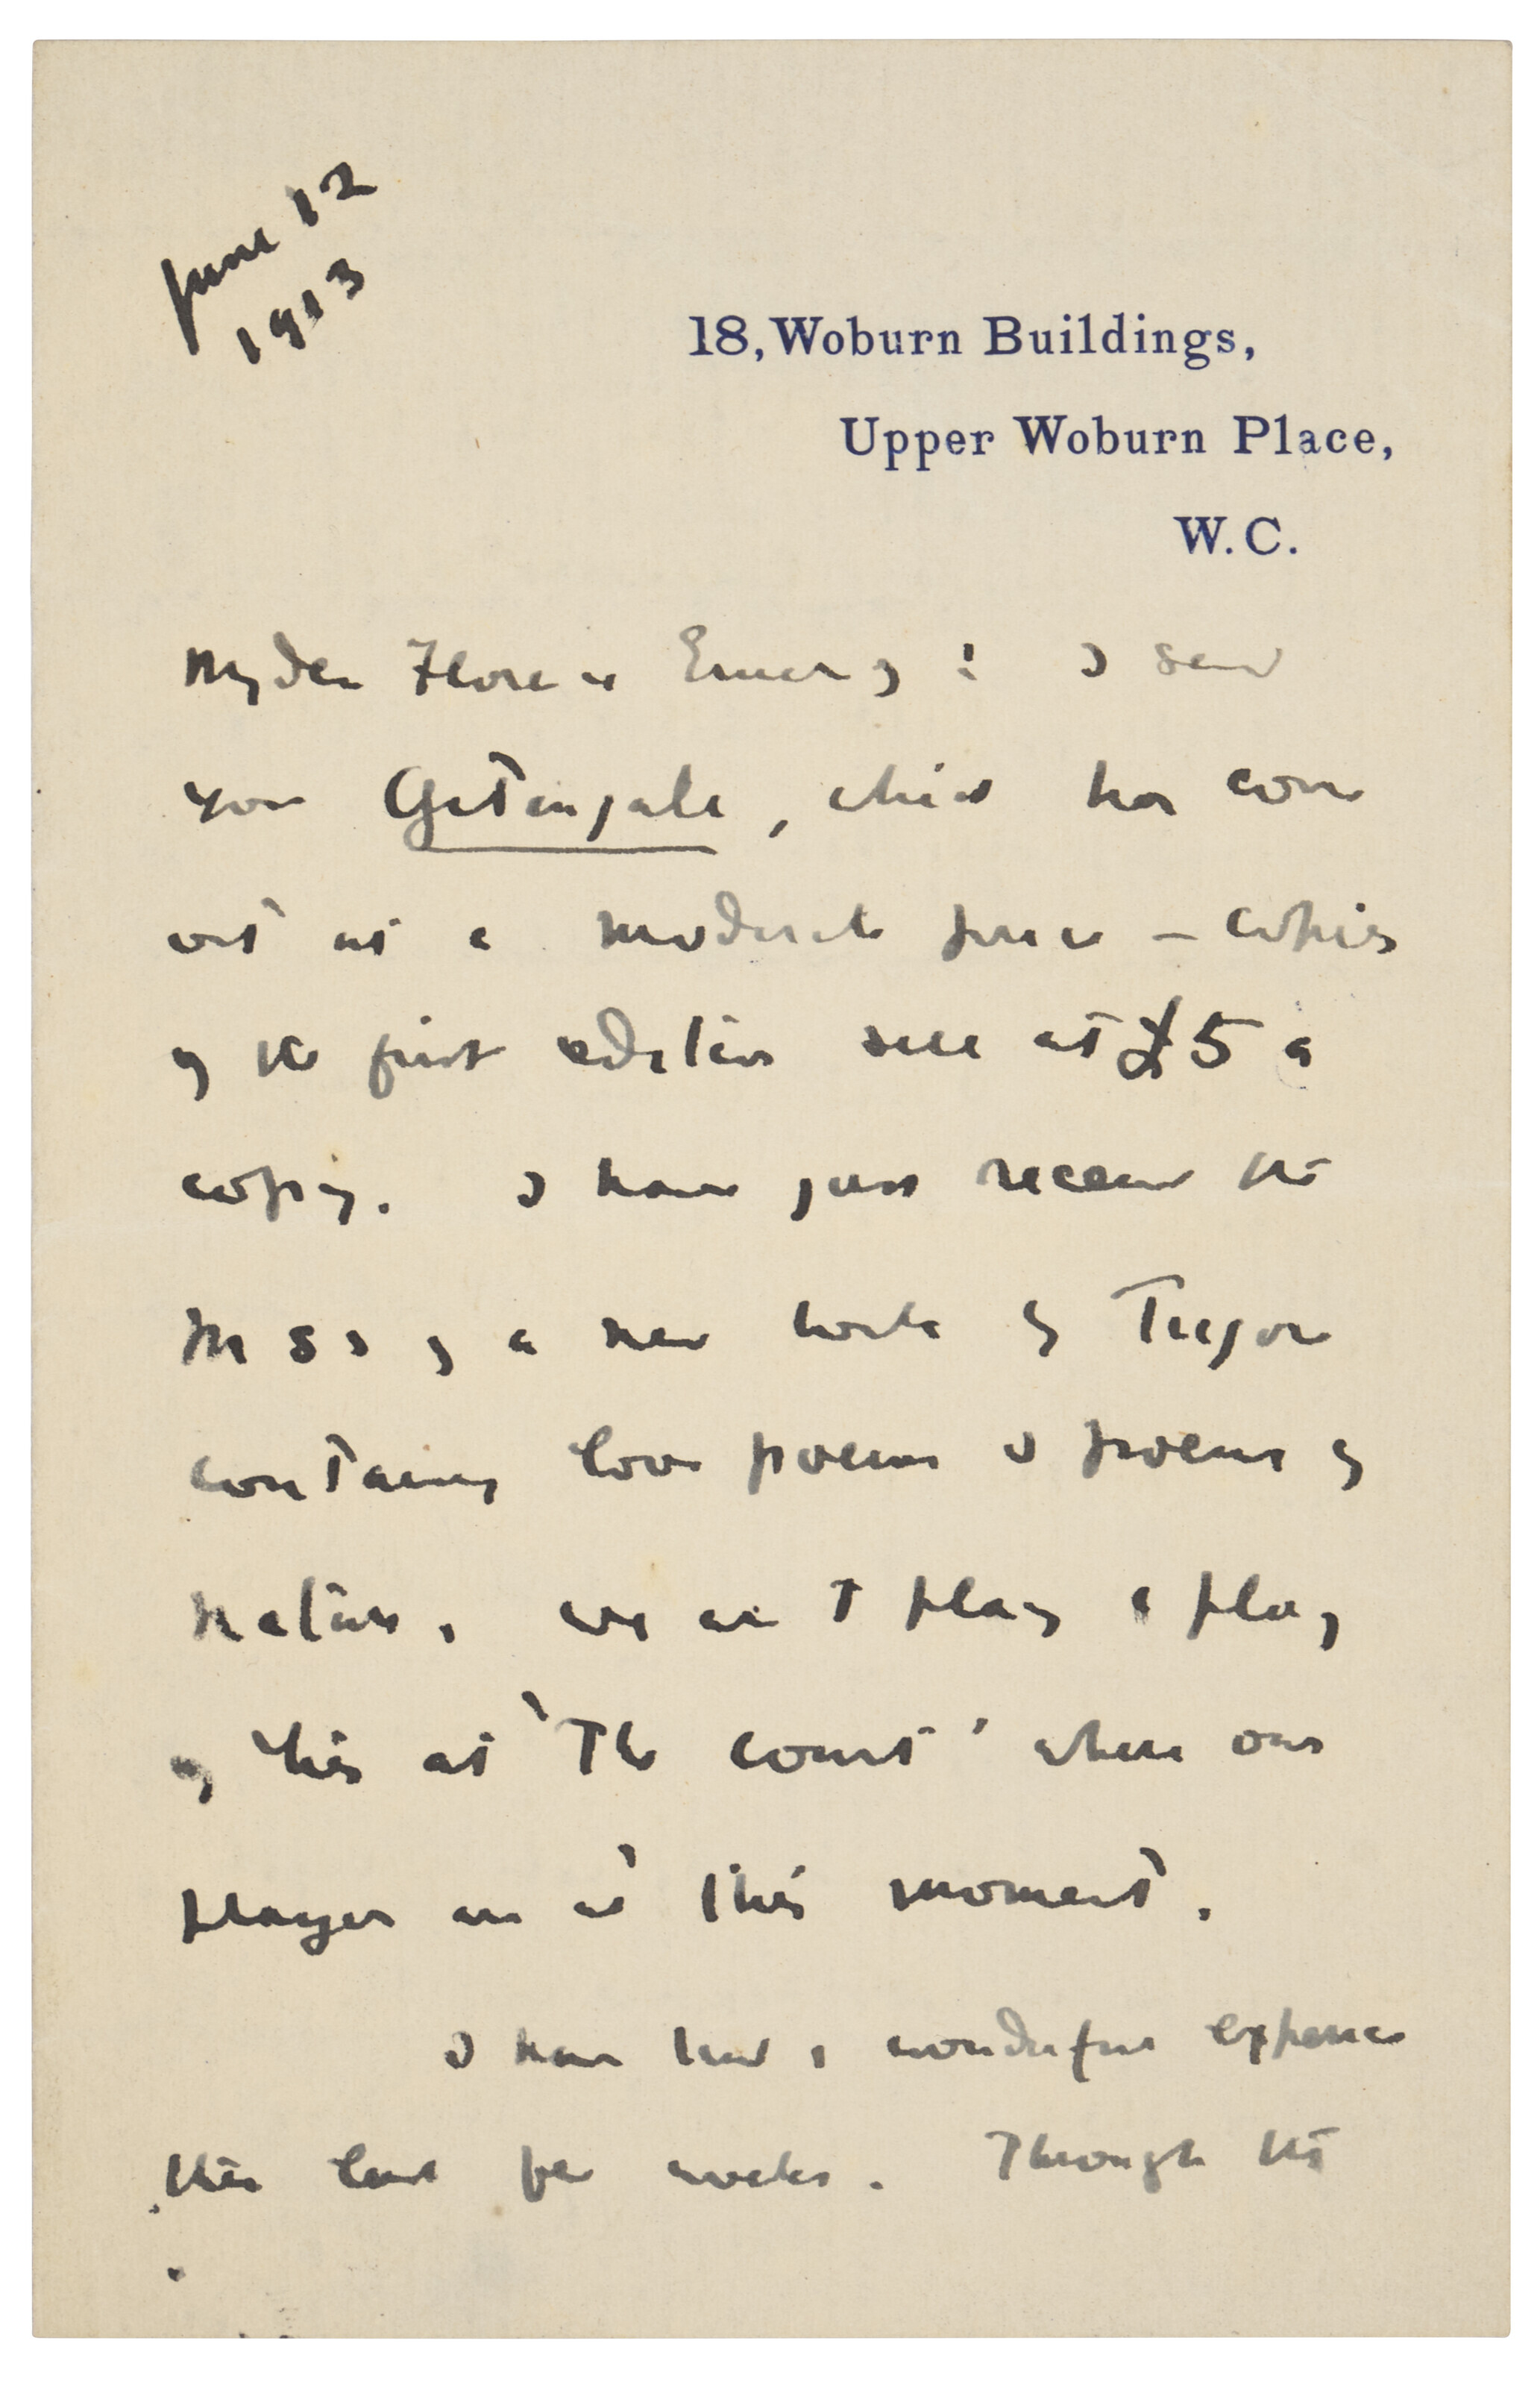 June 12
1913
18, Woburn Buildings,
Upper Woburn Place,
W.C.
My dear Florence Emery: I send
you Gitanjali, which has come
out at a moderate price – copies
of the first edition sell at £5 a
copy. I have just received the
MSS of a new book by Tagore
containing love poems & poems of
nature. We are to play a play
of his at 'The Court' where our
players are at this moment.
I have had a wonderful experience
this last few weeks. Through the